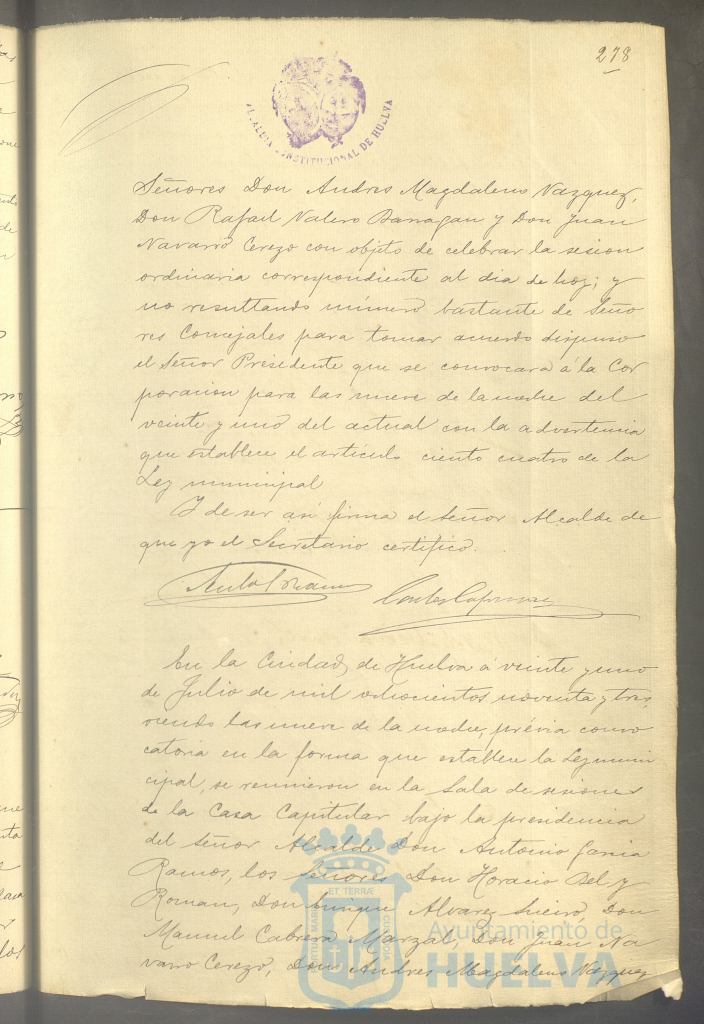 278
ALCALDIA CONSTITUCIONAL DE HUELVA
Señores Don Andres Magdaleno Vazquez,
Don Rafael Valero Barragan y Don Juan
Navarro Cerezo con objeto de celebrar la sesion
ordinaria correspondiente al dia de hoy; y
no resultando número bastante de Seño
res Concejales para tomar acuerdo dispuso
el Señor Presidente que se convocara á la Cor
poracion para las nueve de la noche del
veinte y uno del actual con la advertencia
que establece el articulo ciento cuatro de la
Ley municipal
Y de ser asi firma el Señor Alcalde de
que yo el Secretario certifico.
En la Ciudad de Huelva á veinte y uno
de Julio de mil ochocientos noventa y tres,
siendo las nueve de la noche, prévia convo
catoria en la forma que establece la Ley muni
cipal, se reunieron en la Sala de sesiones
de la Casa Capitular bajo la presidencia
del Señor Alcalde Don Antonio Garcia
Ramos, los Señores Don Horacio Bel y
Roman, Don Enrique Alvarez Don
Manuel Cabrera Marzal, Don Juan Na
varro Cerezo, Don Andres Magdaleno Vazquez
ET TERRÆ
PORTUS MARIS
CUSTODIA
Ayuntamiento de
HUELVA